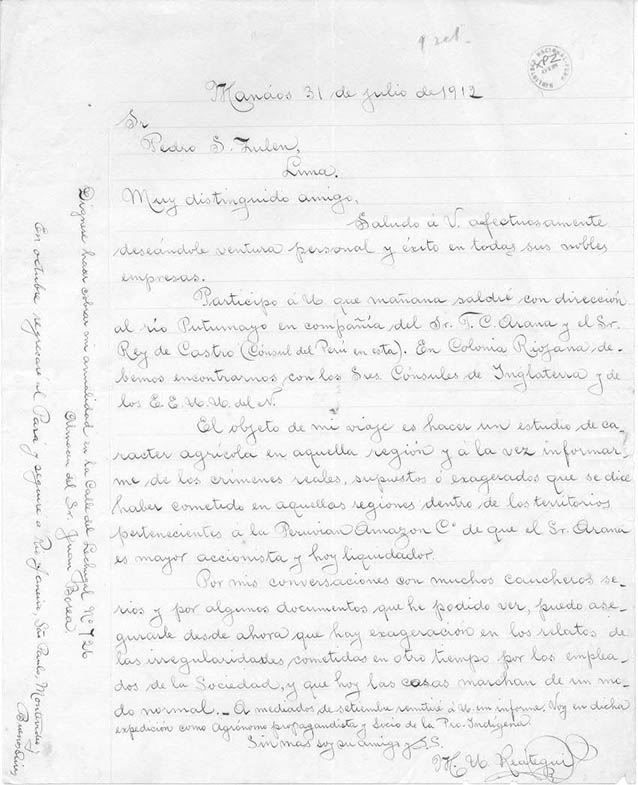 1 rel.
BIBLIOTECA NACIONAL
XPZ
Manáos 31 de julio de 1912
Sr
Pedro S. Zulen,
Lima.
Muy distinguido amigo,
Saludo á V. afectuosamente
deseándole ventura personal y éxito en todas sus nobles
empresas.
Participo á U que mañana saldré con dirección
al río Putumayo en compañía del Sr. J. C. Arana y el Sr.
Rey de Castro (Cónsul del Perú en esta). En Colonia Riojana de-
bemos encontrarnos con los Sres. Cónsules de Inglaterra y de
los E E. U. U. del N.
El objeto de mi viaje es hacer un estudio de ca-
racter agrícola en aquella región y á la vez informar-
me de los crímenes reales, supuestos ó exagerados que se dice
haber cometido en aquellas regiones dentro de los territorios
pertenecientes á la Peruvian Amazon Cº de que el Sr. Arana
es mayor accionista y hoy liquidador.
Por mis conversaciones con muchos caucheros se-
rios y por algunos documentos que he podido ver, puedo ase-
gurarle desde ahora que hay exageración en los relatos de
las irregularidades cometidas en otro tiempo por los emplea-
dos de la Sociedad, y que hoy las cosas marchan de un mo-
do normal. _ A mediados de setiembre remitiré á U. un informe. Voy en dicha
expedición como Agrónomo propagandista y Socio de la Pro-Indígena
Sin mas soy su amigo y S. S.
M. U. Reátegui
Dígnese hacer cobrar mi anualidad en la Calle del Lechugal Nº 726
Almacen del Sr. Juan Borea.
En octubre regresaré al Pará y seguiré á Rio Janeiro, São Paulo, Montevideo y
Buenos Aires